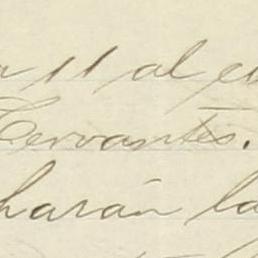 11 al
Cervantes.
harán la